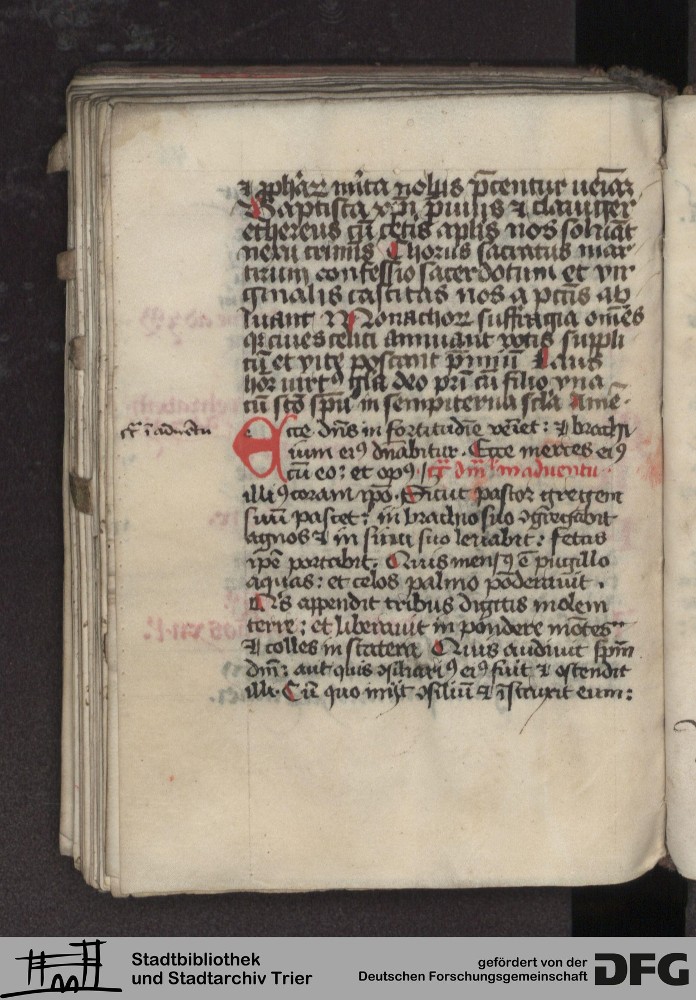 ⁊ ꝓphaꝝ mīta nobis p̄centur ueiaꝫ
Baptista xp̄i p̄uius ⁊ clauiger
ethereus cū cetis aplis nos soluāt
nexu crimis Chorus sacratus mar
tirum confessio sacerdotum et vir
ginalis castitas nos a pctīs ab
luant Monachoꝝ suffragia om̄es
qꝫ ciues celici annuant votis suppli
cū et vite poscant p̄miū Laus
hor uirtꝰ gla deo pri cū filio vna
cū sc̄o sp̄u in sempiterna scl̄a Amē
Ecce dn̄s in fortitudīe veīet : ⁊ brachi
ium eiꝰ dn̄abitur. Ecce merces eiꝰ
cū eo : et opꝰ
illiꝰ coram ipo. Sicut pastor gregem
suū pascet : in brachio suo ꝯgregabit
agnos ⁊ in sinu suo leuabit : fetas
ipē portabit. Quis mensꝰ ē pugillo
aquas : et celos palmo pōderauit.
Qis appendit tribus digitis molem
terre : et liberauit in pondere mōtes
⁊ colles in statera Quis audiuit sp̄m
dn̄i : aut quis ꝯsiliariꝰ eiꝰ fuit ⁊ ostendit
illi. Cū quo iniit ꝯsiliū ⁊ īstruxit eum :
Stadtbibliothek
und Stadtarchiv Trier
gefördert von der
Deutschen Forschungsgemeinschaft
DFG